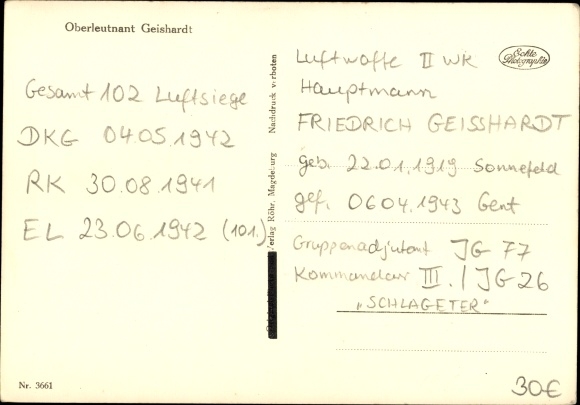 Oberleutnant Geishardt
Gesamt 102 Luftsiege
DKG 04.05.1942
RK 30.08.1941
EL 23.06.1942 (101.)
Nr. 3661
Verlag Röhr, Magdeburg Nachdruck verboten
Echte Photographie
Luftwaffe II WK
Hauptmann
FRIEDRICH GEISSHARDT
geb. 22.01.1919 Sonnefeld
gef. 06 04.1943 Gent
Gruppenadjutant JG 77
Kommandeur III. / JG 26
"SCHLAGETER"
30€